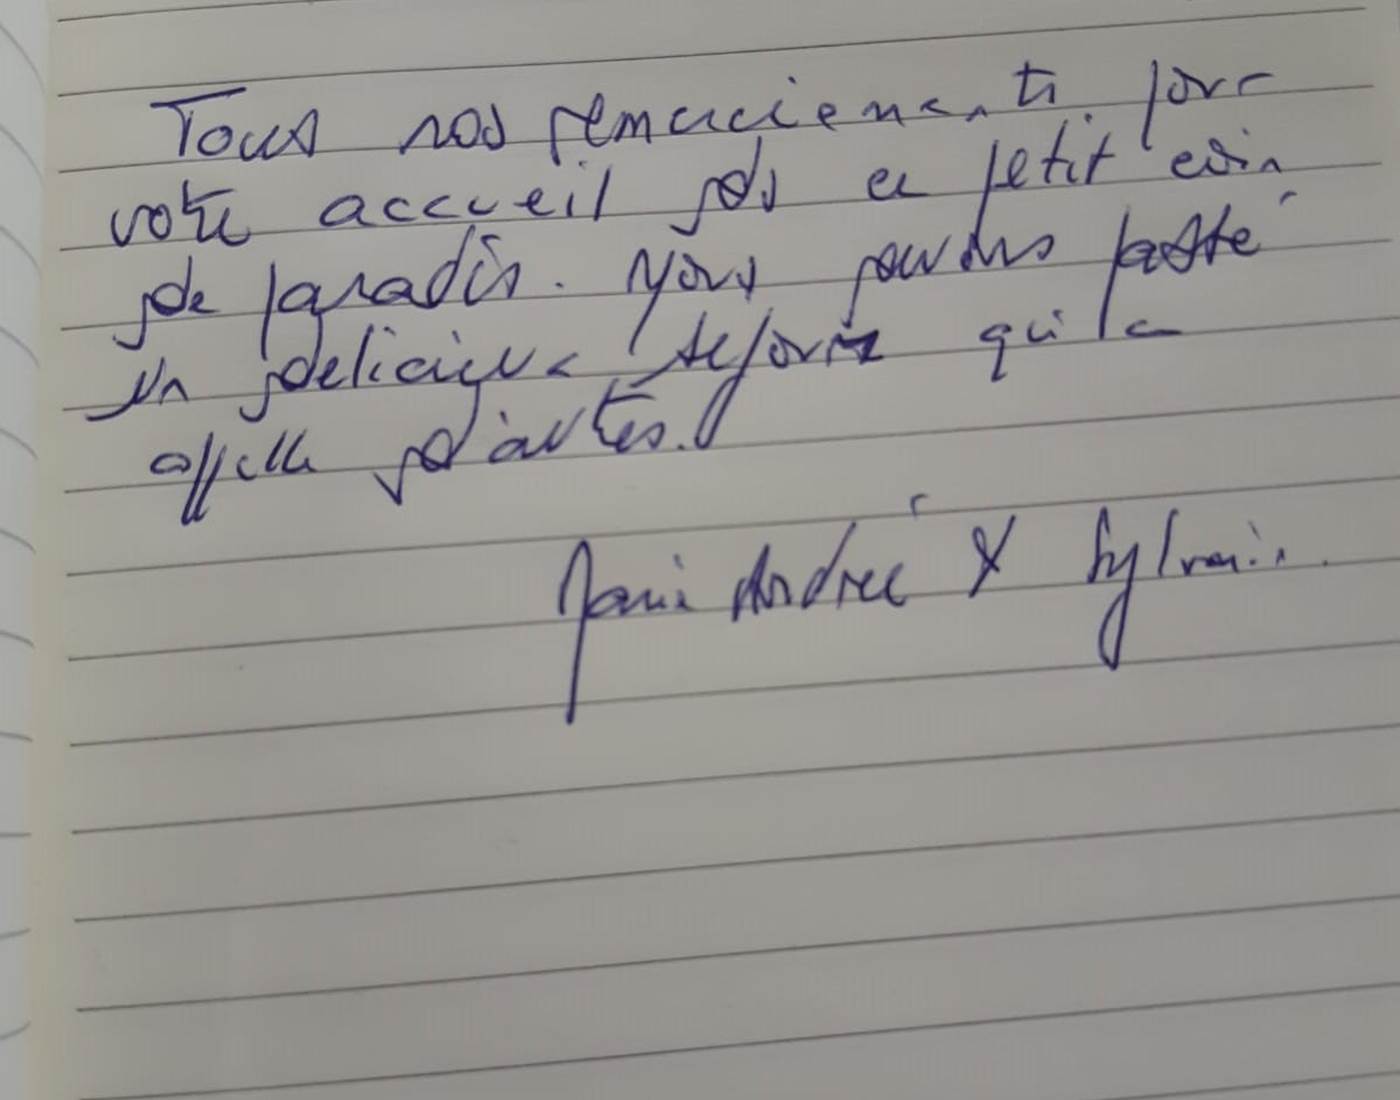 Tous nos remerciements pour
votre accueil ds ce petit coin
de paradis. Nous avons passé
un delicieux séjour qui en
appelle d'autres.
Marie Andrée & Sylvain.